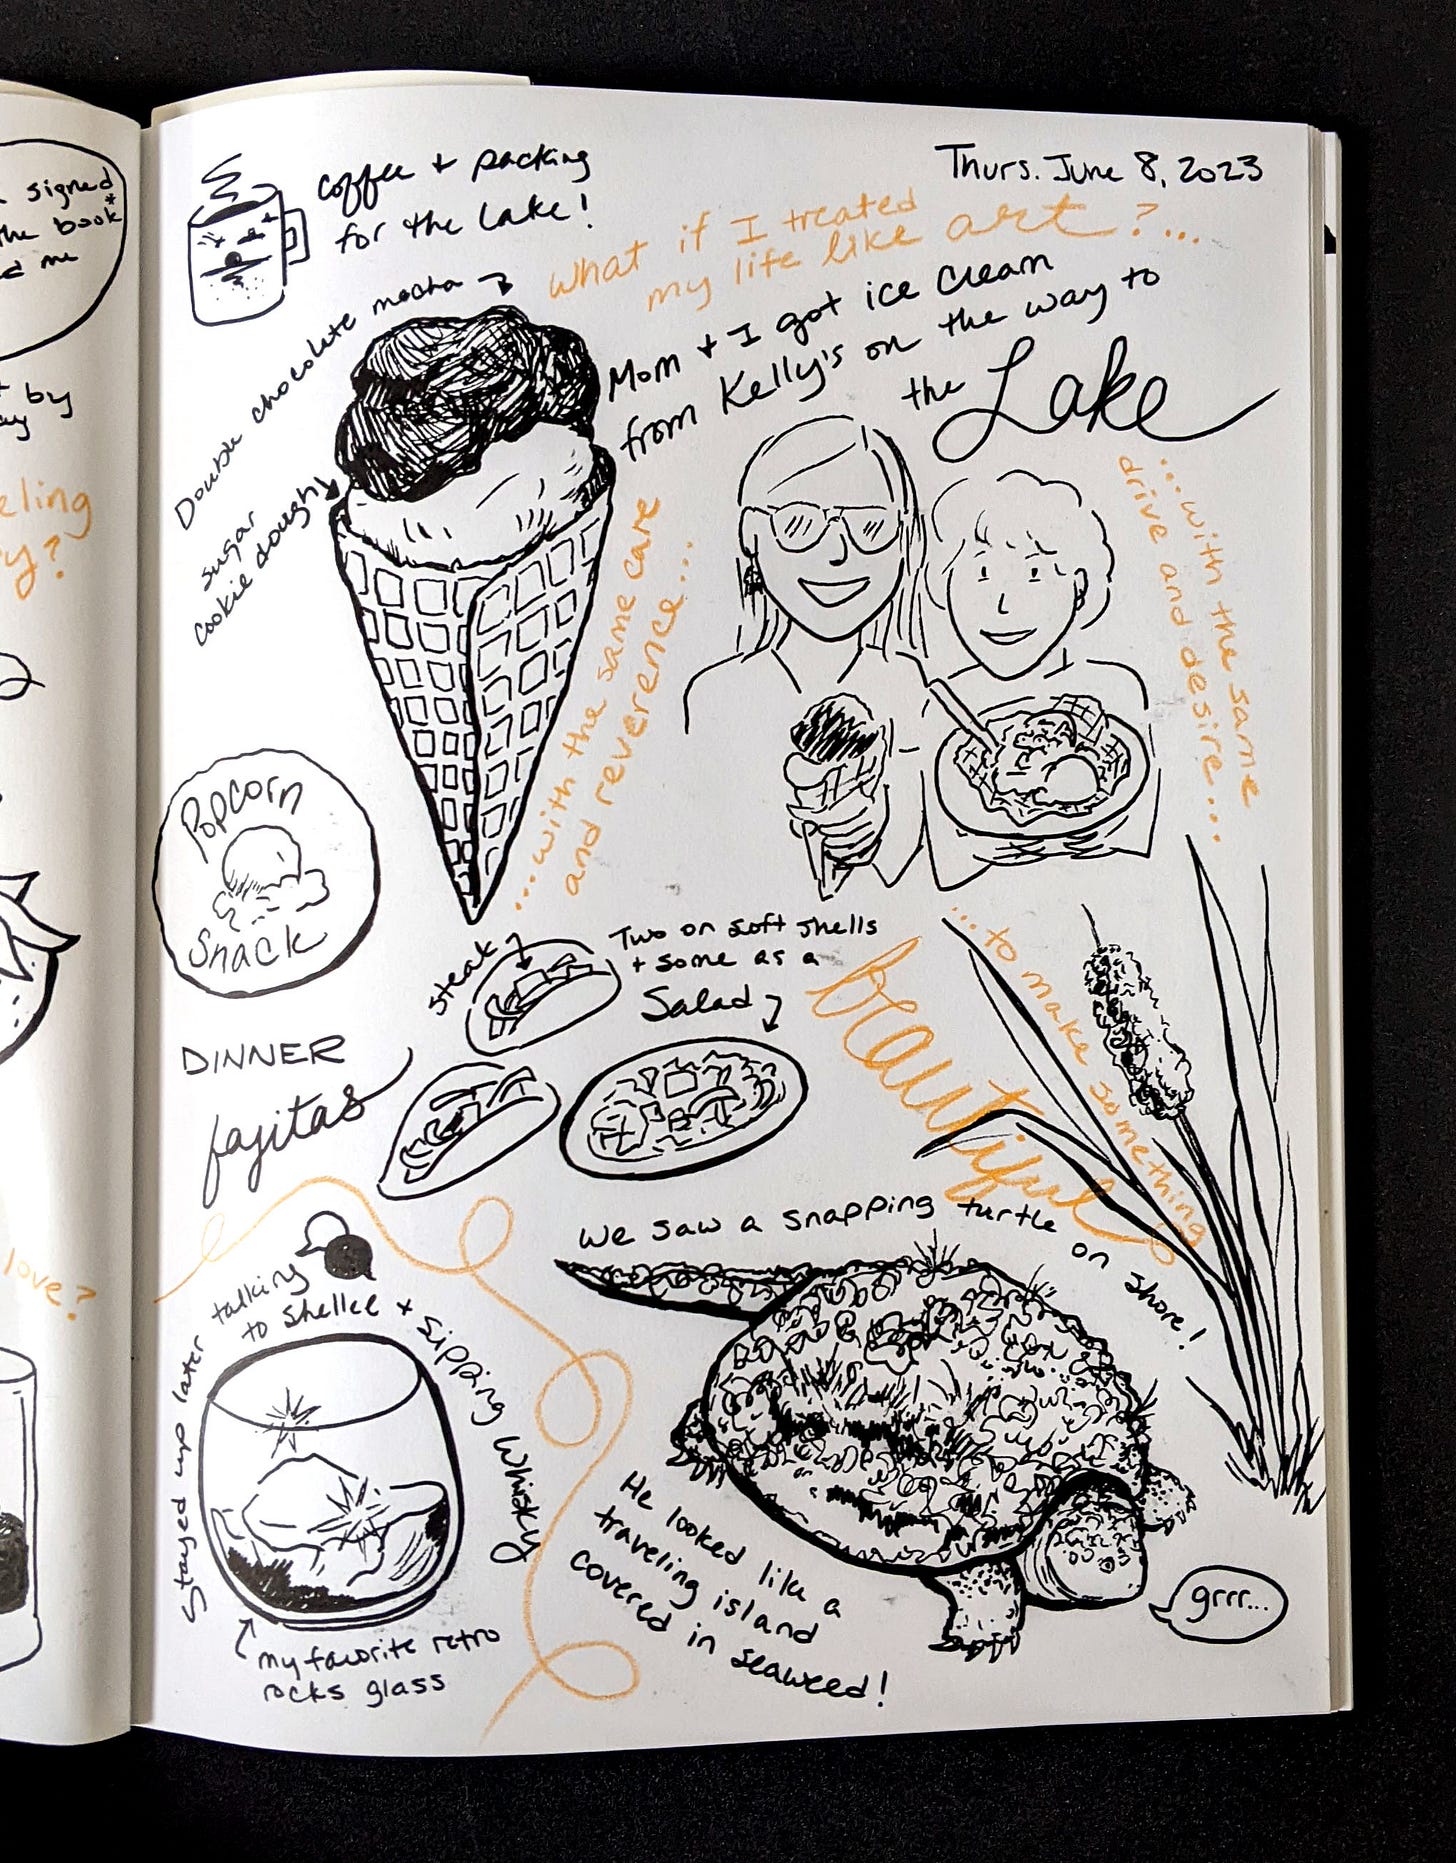 signed
the book*
me
by
love?
Thurs. June 8, 2023
coffee + packing
for the Lake!
What if I treated
my life like art?...
Double chocolate mocha
sugar
cookie dough!
Mom + I got ice cream
from Kelly's on the way to
the Lake
...with the same care
and reverence...
...with the same
drive and desire...
...to make something
beautiful
Popcorn
Snack
DINNER
fajitas
steak
Two on soft shells
+ some as a
Salad
We saw a snapping turtle on shore!
He looked like a
traveling island
covered in seaweed!
grrr...
Stayed up later talking
to Shellee + sipping whisky
my favorite retro
rocks glass